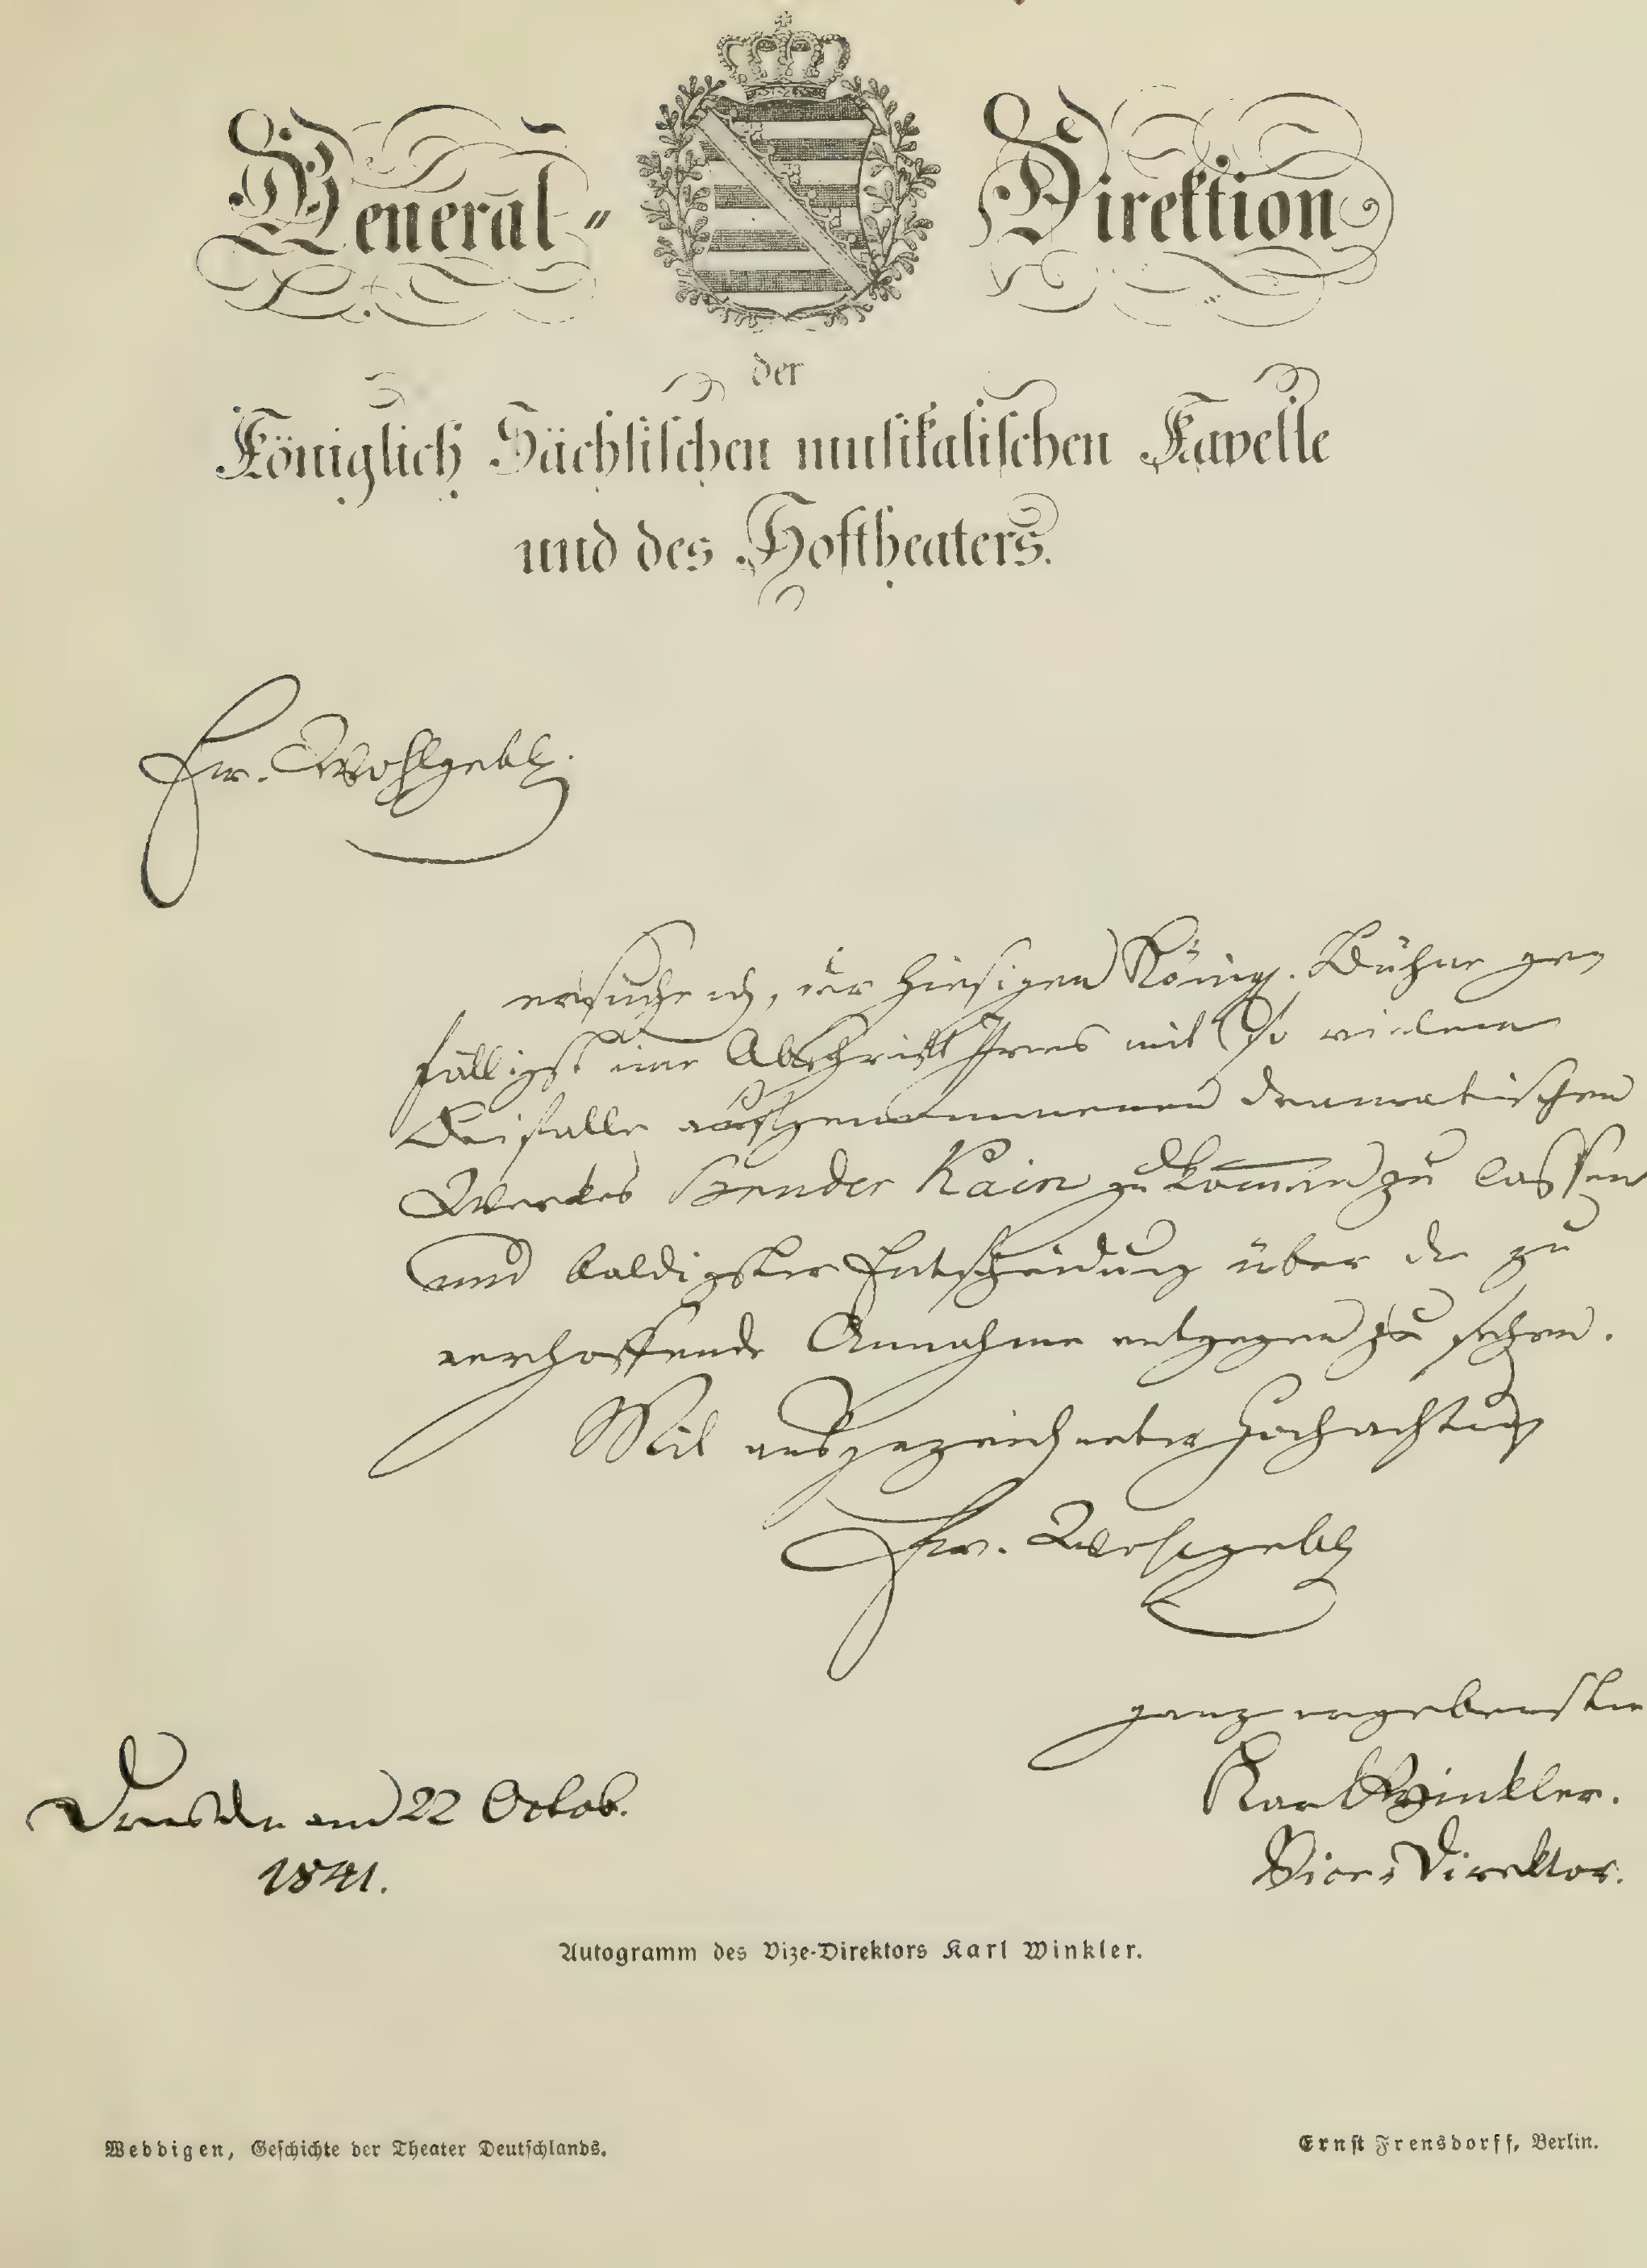 General- Direktion
der
Königlich Sächsischen musikalischen Kapelle
und des Hoftheaters.
Ew. Wohlgeb.
ersuche ich, der hiesigen Königl. Bühne ge-
fälligst eine Abschrift Ihres mit so vielem
Beifalle aufgenommenen dramatischen
Werkes Bruder Kain zukommen zu lassen
und baldigster Entscheidung über die zu
verhoffende Annahme entgegen zu sehen.
Mit ausgezeichneter Hochachtung
Ew. Wohlgeb.
ganz ergebenster
Dresden am 22 Octob.
1841.
Karl Winkler.
Vice-Direktor.
Autogramm des Vize-Direktors Karl Winkler.
Weddigen, Geschichte der Theater Deutschlands.
Ernst Frensdorff, Berlin.